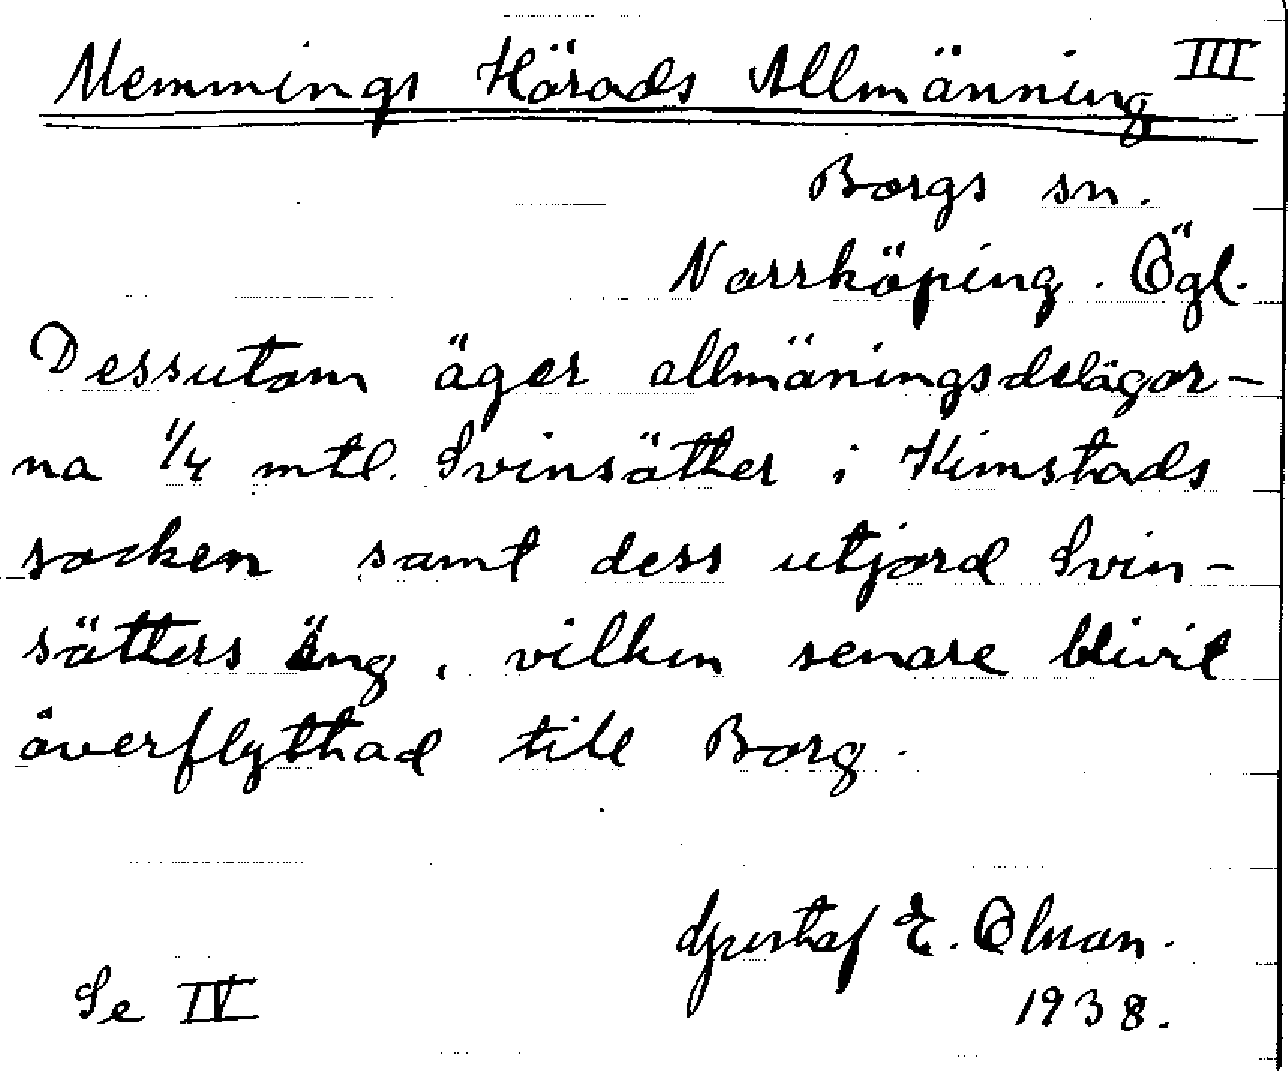 Memmings Härads Allmänning III
Borgs sn.
Norrköping. Ögl.
Dessutom äger allmäningsdelägar-
na 1/4 mtl. Svinsätter i Kimstads
socken samt dess utjord Svin-
sätters äng, vilken senare blivit
överflyttad till Borg.
Gustaf E. Olson.
Se IV 1938.